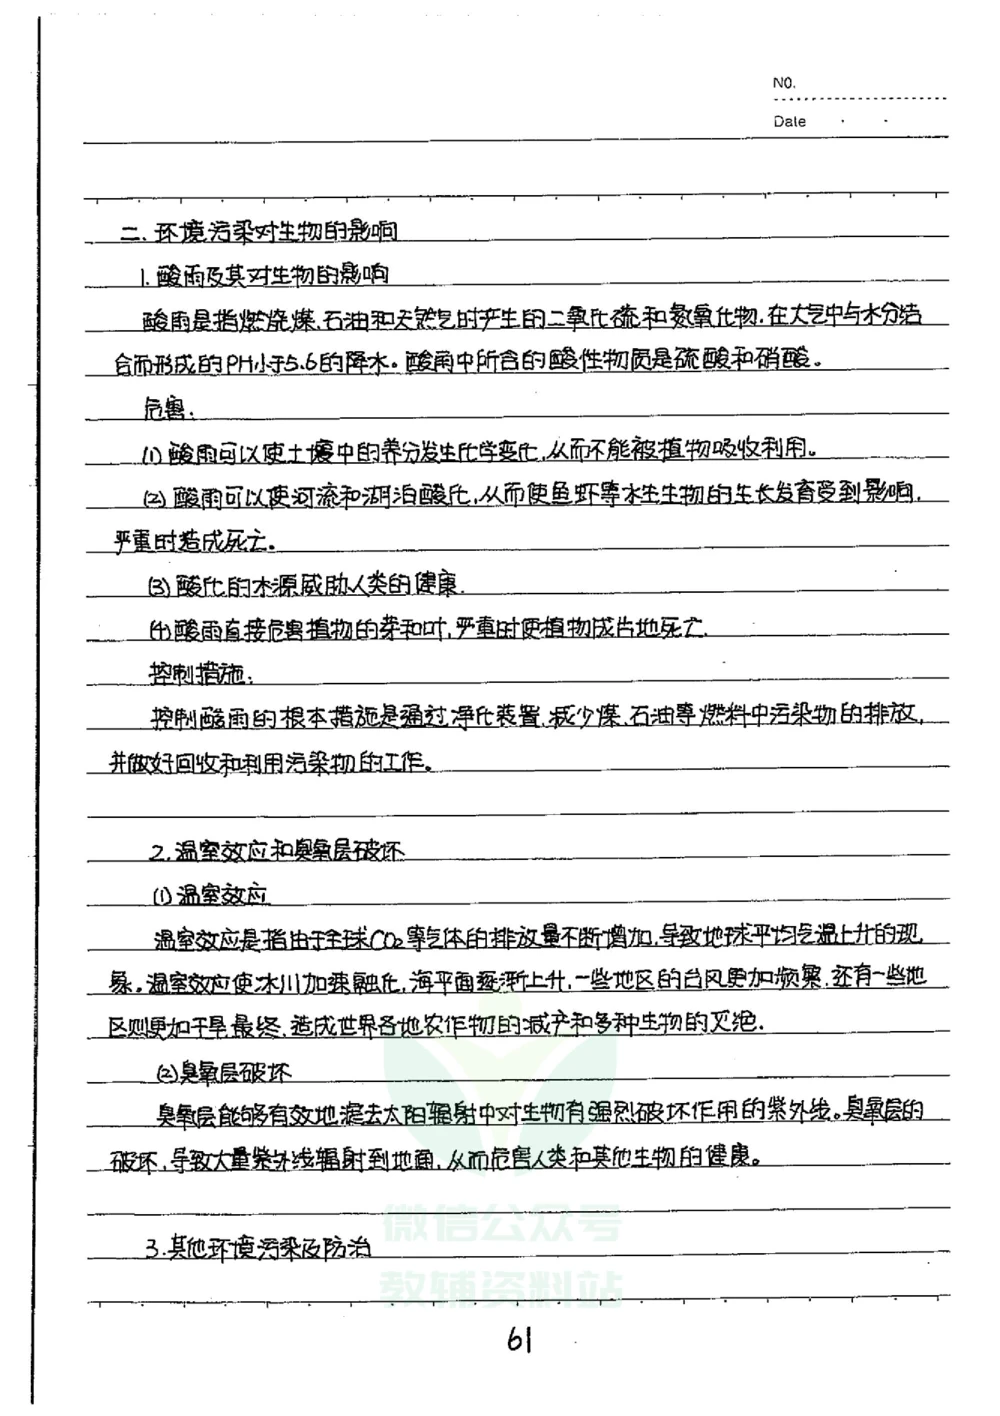 NO.
Date
二.环境污染对生物的影响
1.酸雨及其对生物的影响
酸雨是指燃烧煤.石油和天然气时产生的二氧化硫和氮氧化物.在大气中与水分结
合而形成的PH小于5.6的降水。酸雨中所含的酸性物质是硫酸和硝酸。
危害:
(1)酸雨可以使土壤中的养分发生化学变化,从而不能被植物吸收利用。
(2)酸雨可以使河流和湖泊酸化,从而使鱼虾等水生生物的生长发育受到影响,
严重时造成死亡。
(3)酸化的水源威胁人类的健康.
(4)酸雨直接危害植物的芽和叶,严重时使植物成片地死亡.
控制措施:
控制酸雨的根本措施是通过净化装置.减少煤.石油等燃料中污染物的排放,
并做好回收和利用污染物的工作。
2.温室效应和臭氧层破坏
(1)温室效应
温室效应是指由于全球CO₂等气体的排放量不断增加,导致地球平均气温上升的现
象。温室效应使冰川加速融化,海平面逐渐上升,一些地区的台风更加频繁.还有一些地
区则更加干旱.最终.造成世界各地农作物的减产和多种生物的灭绝.
(2)臭氧层破坏
臭氧层能够有效地滤去太阳辐射中对生物有强烈破坏作用的紫外线。臭氧层的
破坏,导致大量紫外线辐射到地面,从而危害人类和其他生物的健康。
3.其他环境污染及防治
微信公众号
教辅资料站
61